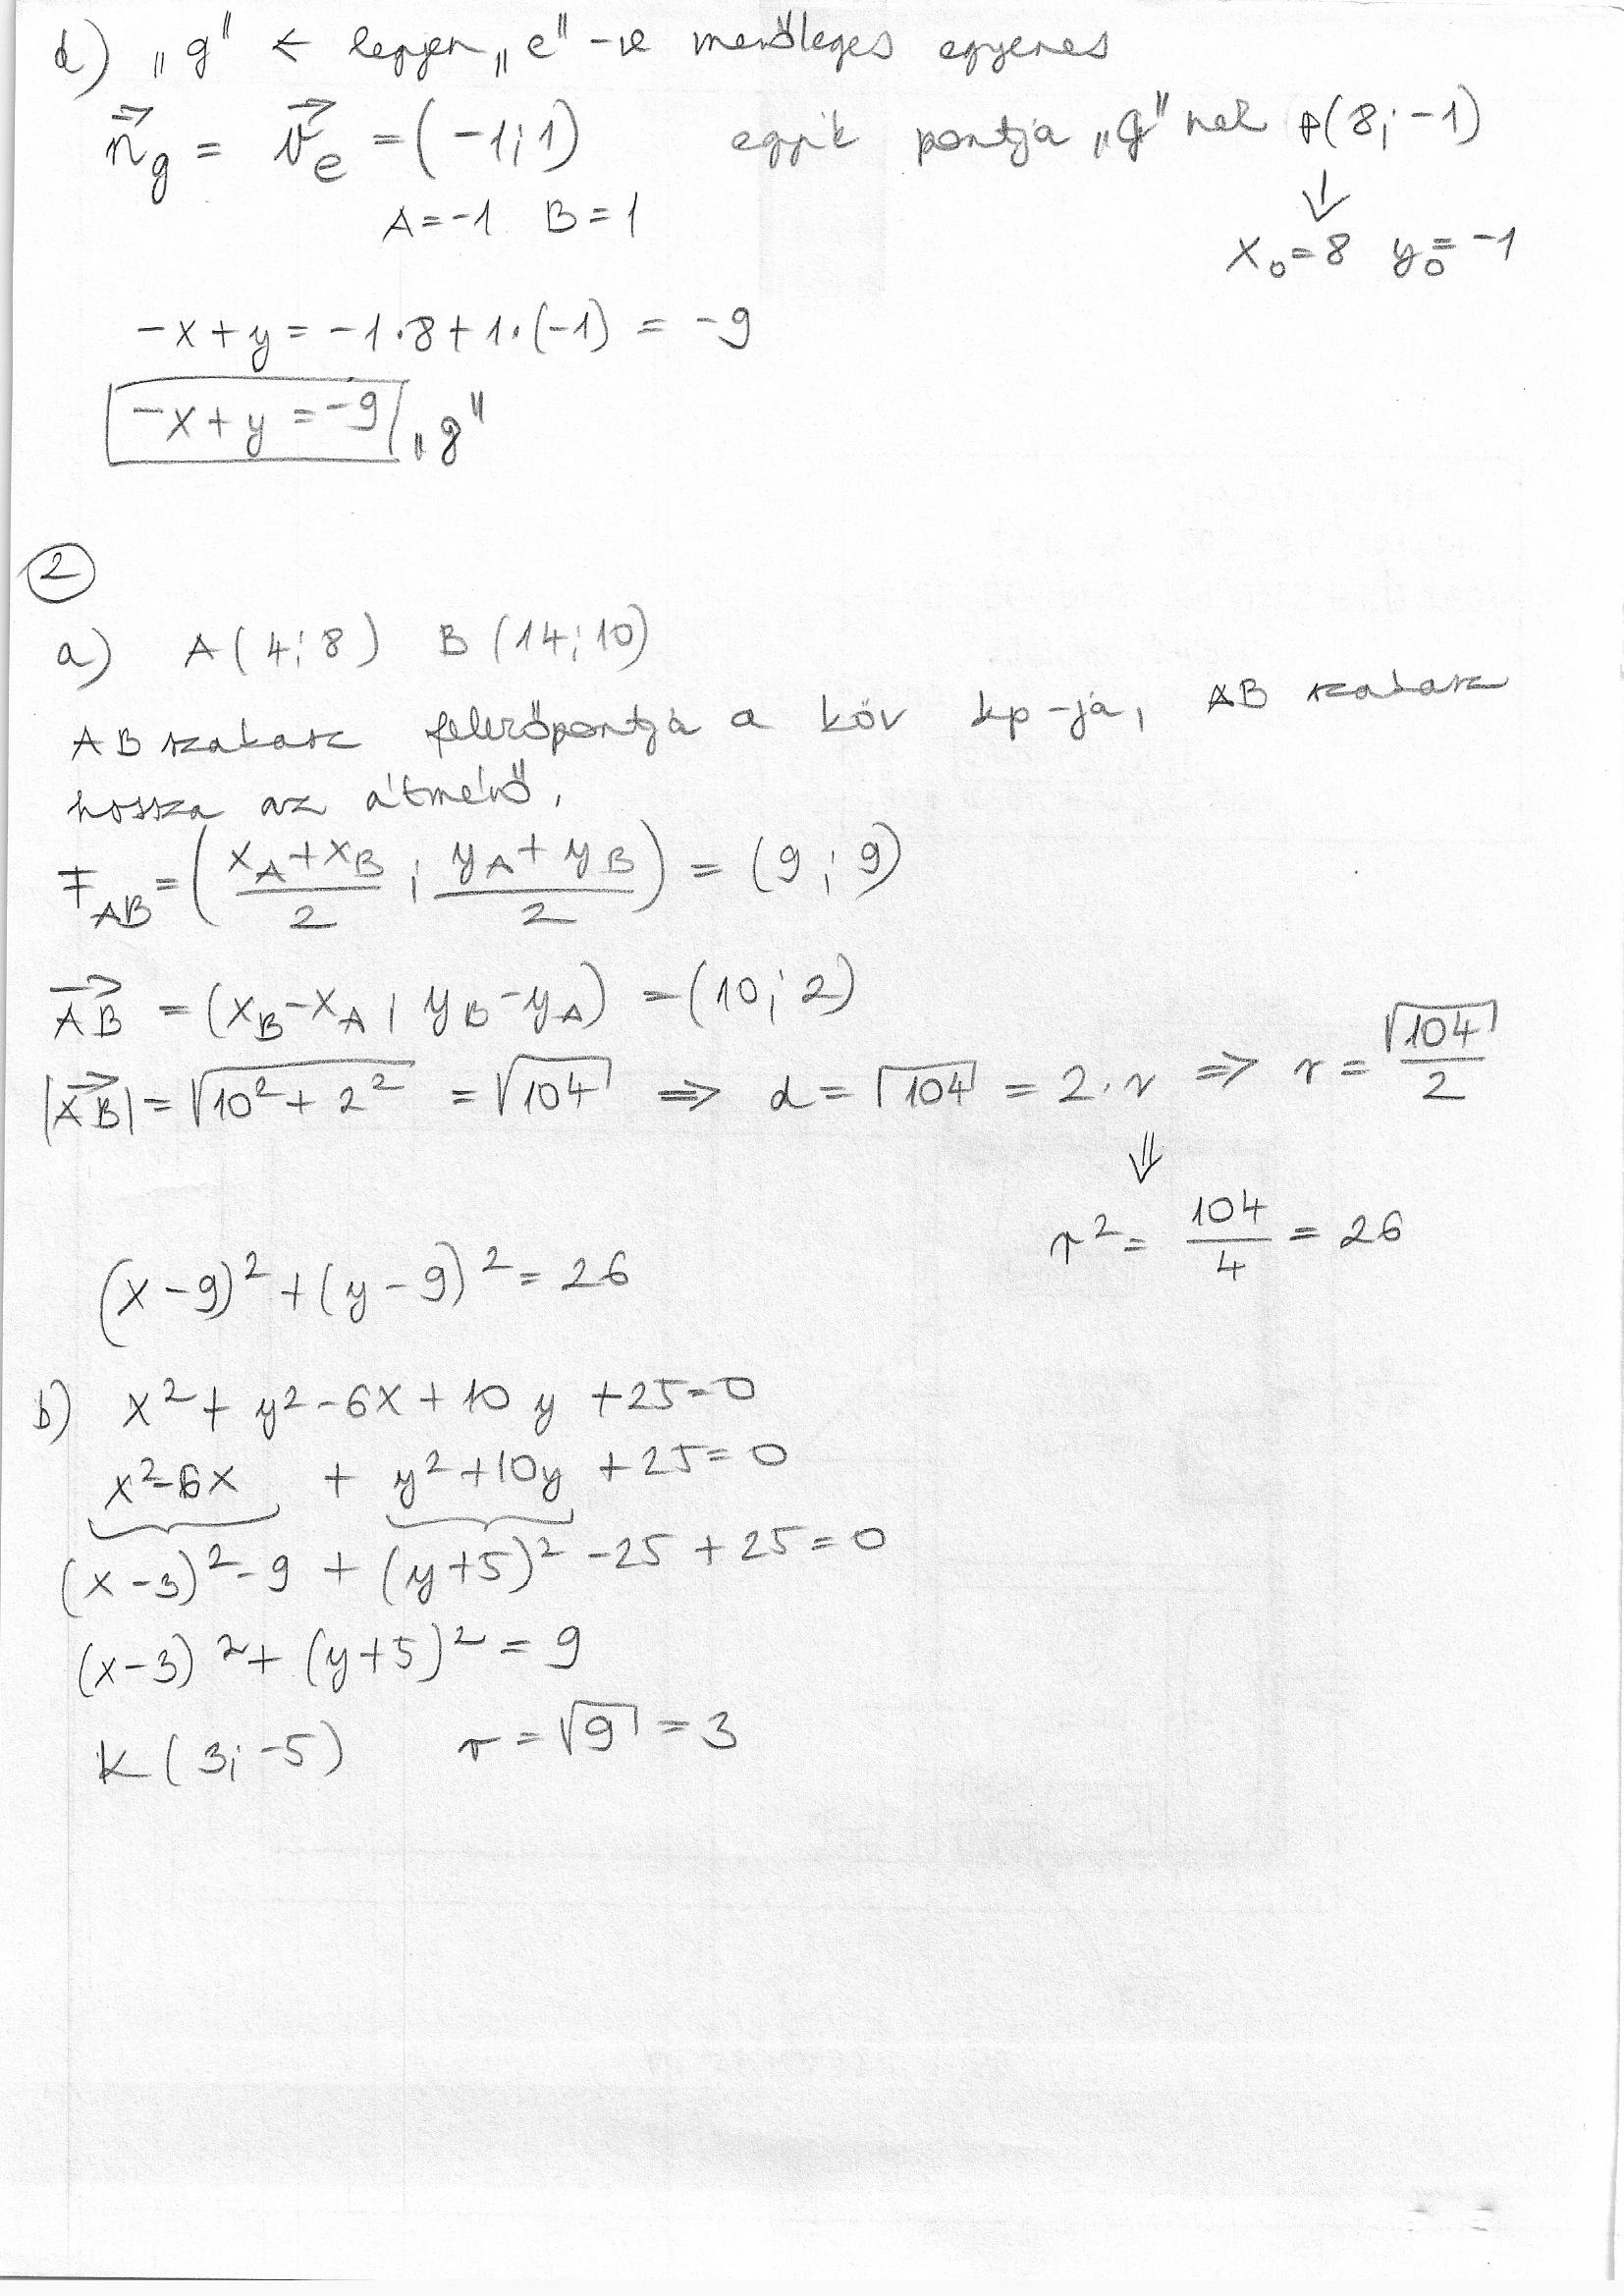 d) „g" ← legyen „e"-re merőleges egyenes
n⃗_g = v⃗_e = (-1; 1) egyik pontja „g" nek P(8; -1)
↓
A = -1 B = 1
x₀ = 8 y₀ = -1
-x + y = -1·8 + 1·(-1) = -9
-x + y = -9 „g"
2
a) A(4; 8) B(14; 10)
AB szakasz felezőpontja a köv kp-ja, AB szakasz
hossza az átmérő.
F_AB = ((x_A + x_B)/2 ; (y_A + y_B)/2) = (9; 9)
AB⃗ = (x_B - x_A ; y_B - y_A) = (10; 2)
|AB⃗| = √(10² + 2²) = √104 ⇒ d = √104 = 2·r ⇒ r = √104/2
⇓
r² = 104/4 = 26
(x-9)² + (y-9)² = 26
b) x² + y² - 6x + 10y + 25 = 0
x² - 6x + y² + 10y + 25 = 0
(x-3)² - 9 + (y+5)² - 25 + 25 = 0
(x-3)² + (y+5)² = 9
K(3; -5) r = √9 = 3